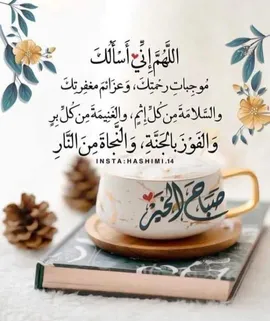 اللَّهُمَّ إِنِّي أَسْأَلُكَ
مُوجِباتِ رحْمَتِكَ، وَعَزائمَ مغفِرتِكَ
والسَّلامَةَ مِن كُلِّ إِثمٍ، والغَنِيمَةَ مِن كُلِّ بِرٍ
وَالفَوْزَ بالجَنَّةِ، وَالنَّجاةَ مِنَ النَّارِ
INSTA:HASHIMI.14
صباح الخير